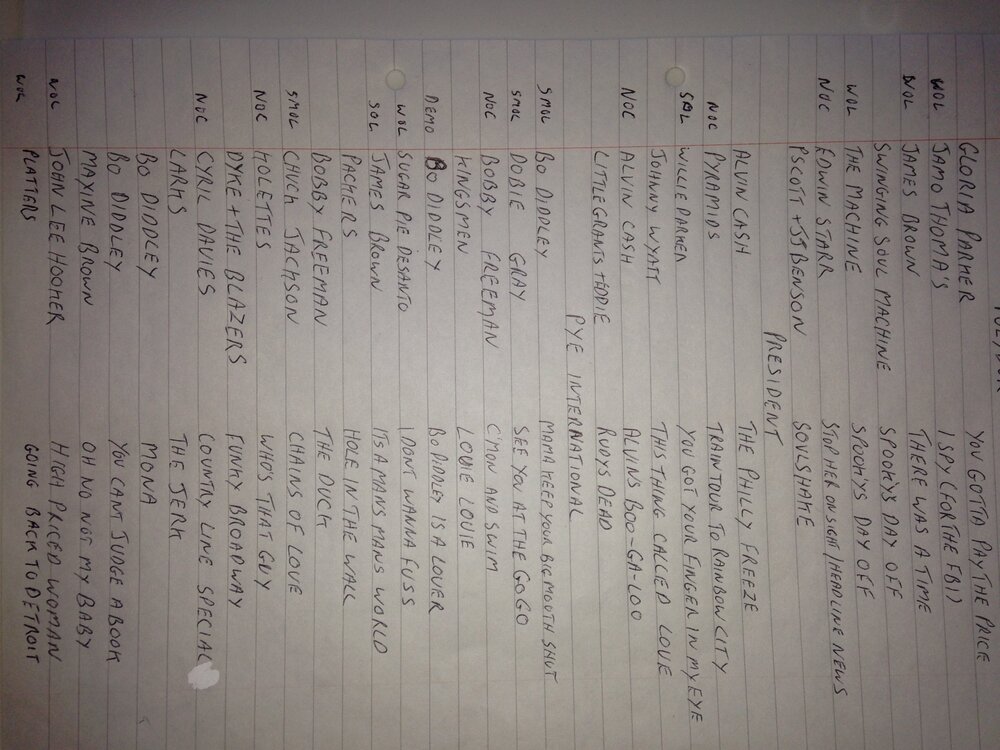 GLORIA PARKER YOU GOTTA PAY THE PRICE
WOL JAMO THOMA'S I SPY (FOR THE FBI)
WOL JAMES BROWN THERE WAS A TIME
SWINGING SOUL MACHINE SPOOKYS DAY OFF
WOL THE MACHINE SPOOKYS DAY OFF
NOC EDWIN STARR STOP HER ON SIGHT/HEADLINE NEWS
P SCOTT + JJ BENSON SOULSHAKE
PRESIDENT
ALVIN CASH THE PHILLY FREEZE
NOC PYRAMIDS TRAIN TOUR TO RAINBOW CITY
SOL WILLIE PARKER YOU GOT YOUR FINGER IN MY EYE
JOHNY WYATT THIS THING CALLED LOVE
NOC ALVIN CASH ALVINS BOO-GA-LOO
LITTLE GRANTS + EDDIE RUDYS DEAD
PYE INTERNATIONAL
SMOL BO DIDDLEY MAMA KEEP YOUR BIG MOUTH SHUT
SMOL DOBIE GRAY SEE YOU AT THE GO GO
NOC BOBBY FREEMAN C'MON AND SWIM
KINGSMEN LOUIE LOUIE
DEMO BO DIDDLEY BO DIDDLEY IS A LOVER
WOL SUGAR PIE DESANTO I DONT WANNA FUSS
SOL JAMES BROWN ITS A MANS MANS WORLD
PACKERS HOLE IN THE WALL
BOBBY FREEMAN THE DUCK
SMOL CHUCK JACKSON CHAINS OF LOVE
NOC KOLETTES WHO'S THAT GUY
DYKE + THE BLAZERS FUNKY BROADWAY
NOC CYRIL DAVIES COUNTRY LINE SPECIAL
LARKS THE JERK
BO DIDDLEY MONA
BO DIDDLEY YOU CANT JUDGE A BOOK
MAXINE BROWN OH NO NOT MY BABY
WOL JOHN LEE HOOKER HIGH PRICED WOMAN
WOL PLATTERS GOING BACK TO DETROIT